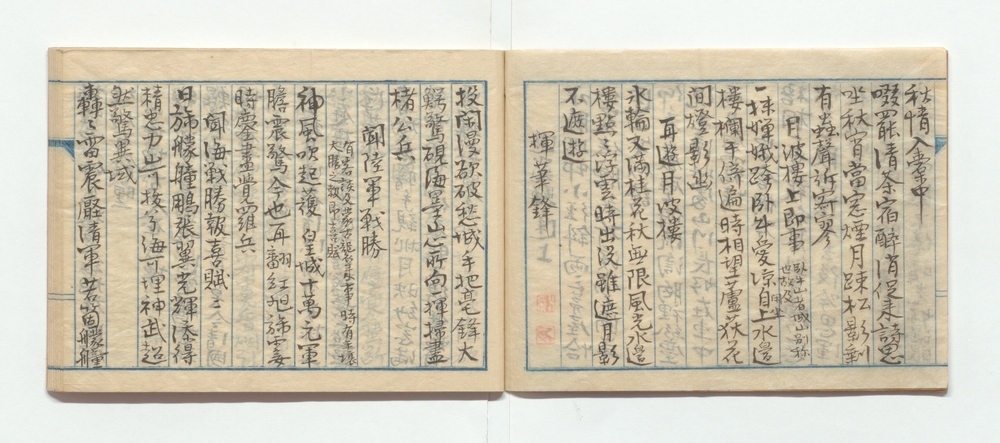 秋情入雲中
啜罷清茶宿醉消促来詩思
坐秋宵當窓煙月踈松影剰
有蟲聲近寂寥
月波樓上即事 臥牛山者城山別称
一抹姮娥踦臥牛愛凉自上水邊
樓欄干倚遍時相望蘆荻花
間燈影幽
再遊月波樓
氷輪又滿桂花秋無限風光水邊
樓點々浮雲時出没雖遮月影
不遮遊
揮筆鋒
投閑漫欲破愁城手把毫鋒大
鯢驚硯海墨山心所向一揮掃盡
楮公兵
聞陸軍戦勝
神風吹起護皇城十萬元軍
膽震驚今也再翻紅旭旆
時摩書覺羅兵
聞海戦勝報喜賦
日旆艨艟鵬張翼光輝添得
精忠力山可抜兮海可埋神武超
然驚異域
轟々雷震壓清軍若箇艨艟